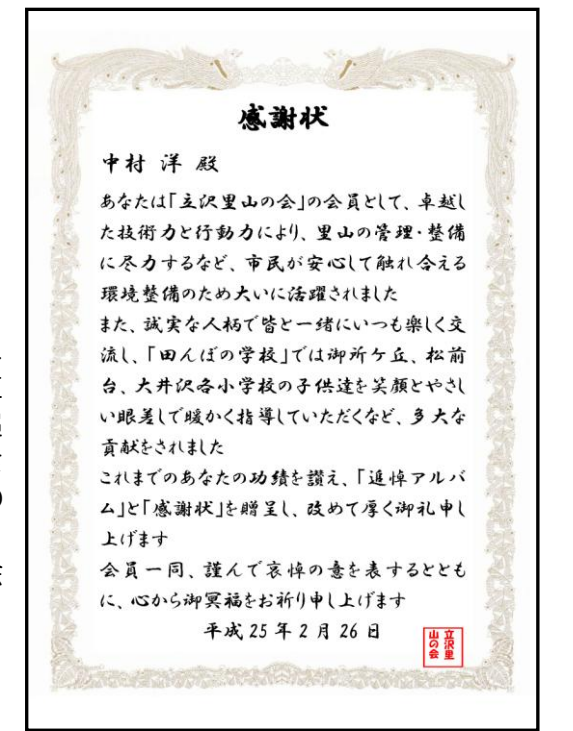 感謝状
中村 洋 殿
あなたは「立沢里山の会」の会員として、卓越し
た技術力と行動力により、里山の管理・整備
に尽力するなど、市民が安心して触れ合える
環境整備のため大いに活躍されました
また、誠実な人柄で皆と一緒にいつも楽しく交
流し、「田んぼの学校」では御所ケ丘、松前
台、大井沢各小学校の子供達を笑顔とやさし
い眼差しで暖かく指導していただくなど、多大な
貢献をされました
これまでのあなたの功績を讃え、「追悼アルバ
ム」と「感謝状」を贈呈し、改めて厚く御礼申し
上げます
会員一同、謹んで哀悼の意を表するととも
に、心から御冥福をお祈り申し上げます
平成25年2月26日
立沢里
山の会